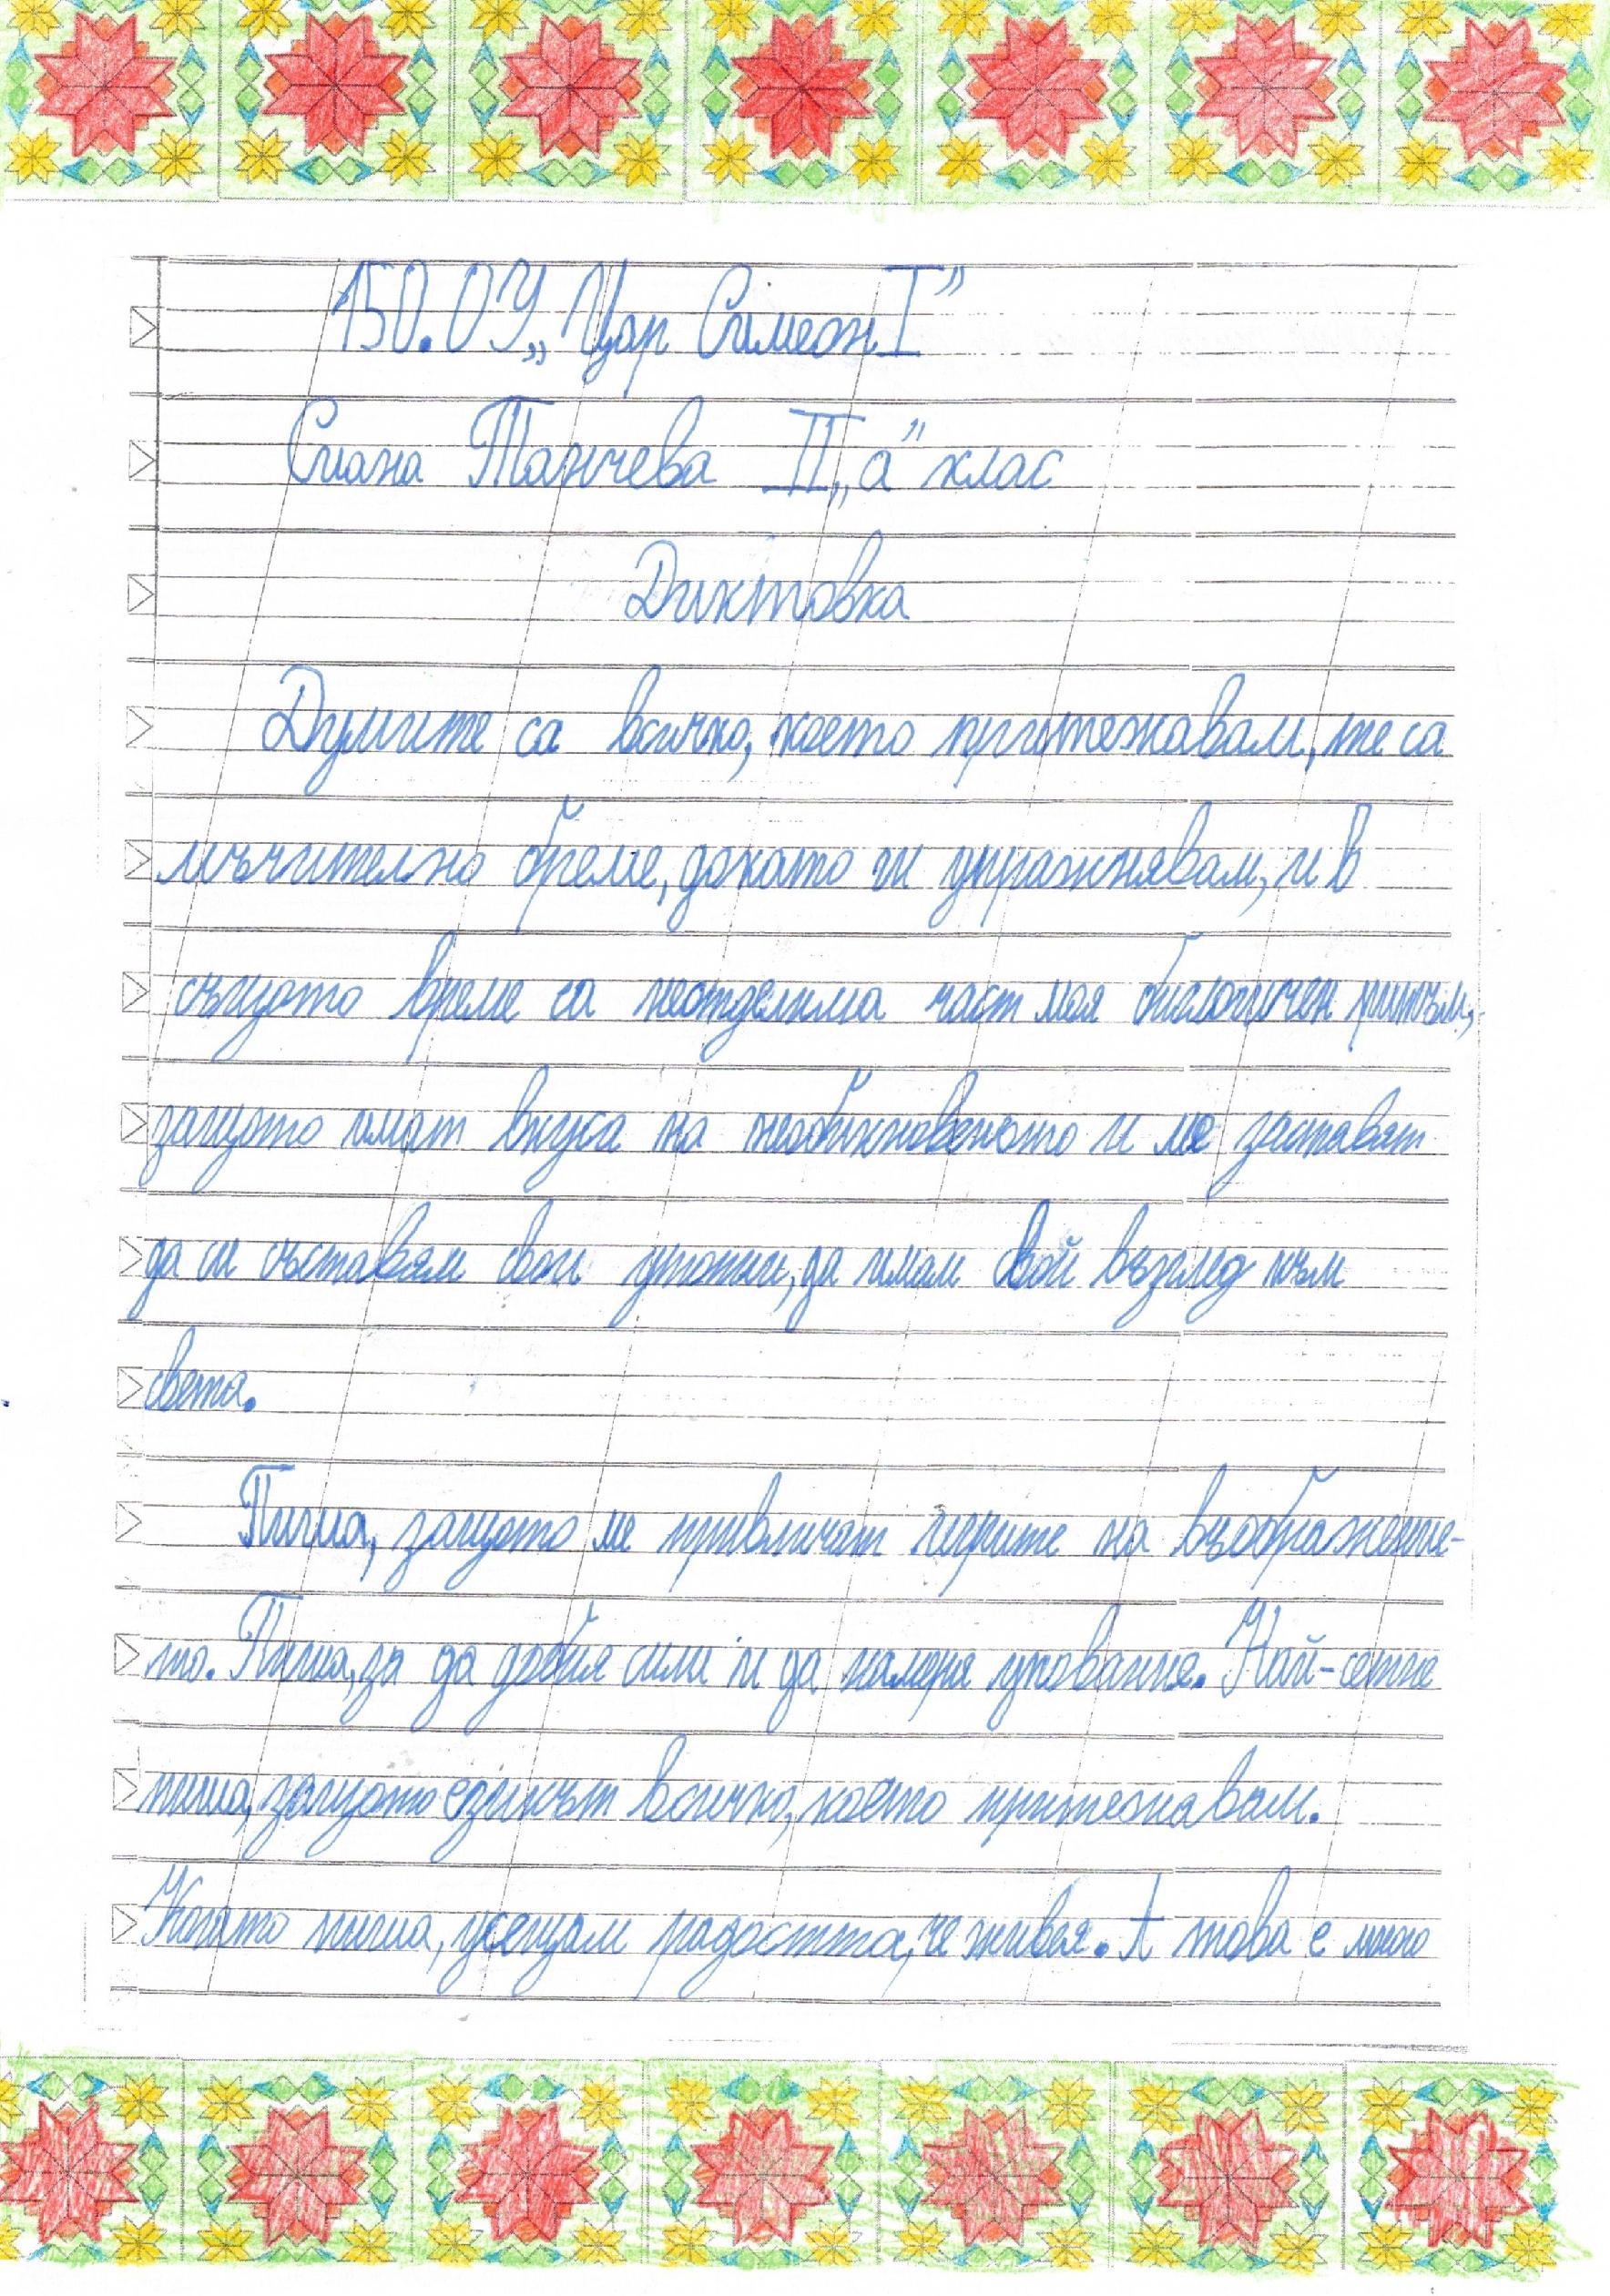 150. ОУ „Цар Симеон I”
Сиана Танчева II „а” клас
Диктовка
Думите са всичко, което притежавам, те са
мъчително бреме, докато ги упражнявам, и в
същото време са неотделима част моя биологичен ритъм,
защото имат вкуса на необикновеното и ме заставят
да си съставям свои утопии, да имам свой възглед към
света.
Пиша, защото ме привличат игрите на въображение-
то. Пиша, за да добия сили и да намеря упование. Най-сетне
пиша, защото езикът всичко, което притежавам.
Когато пиша, усещам радостта, че живея. А това е много